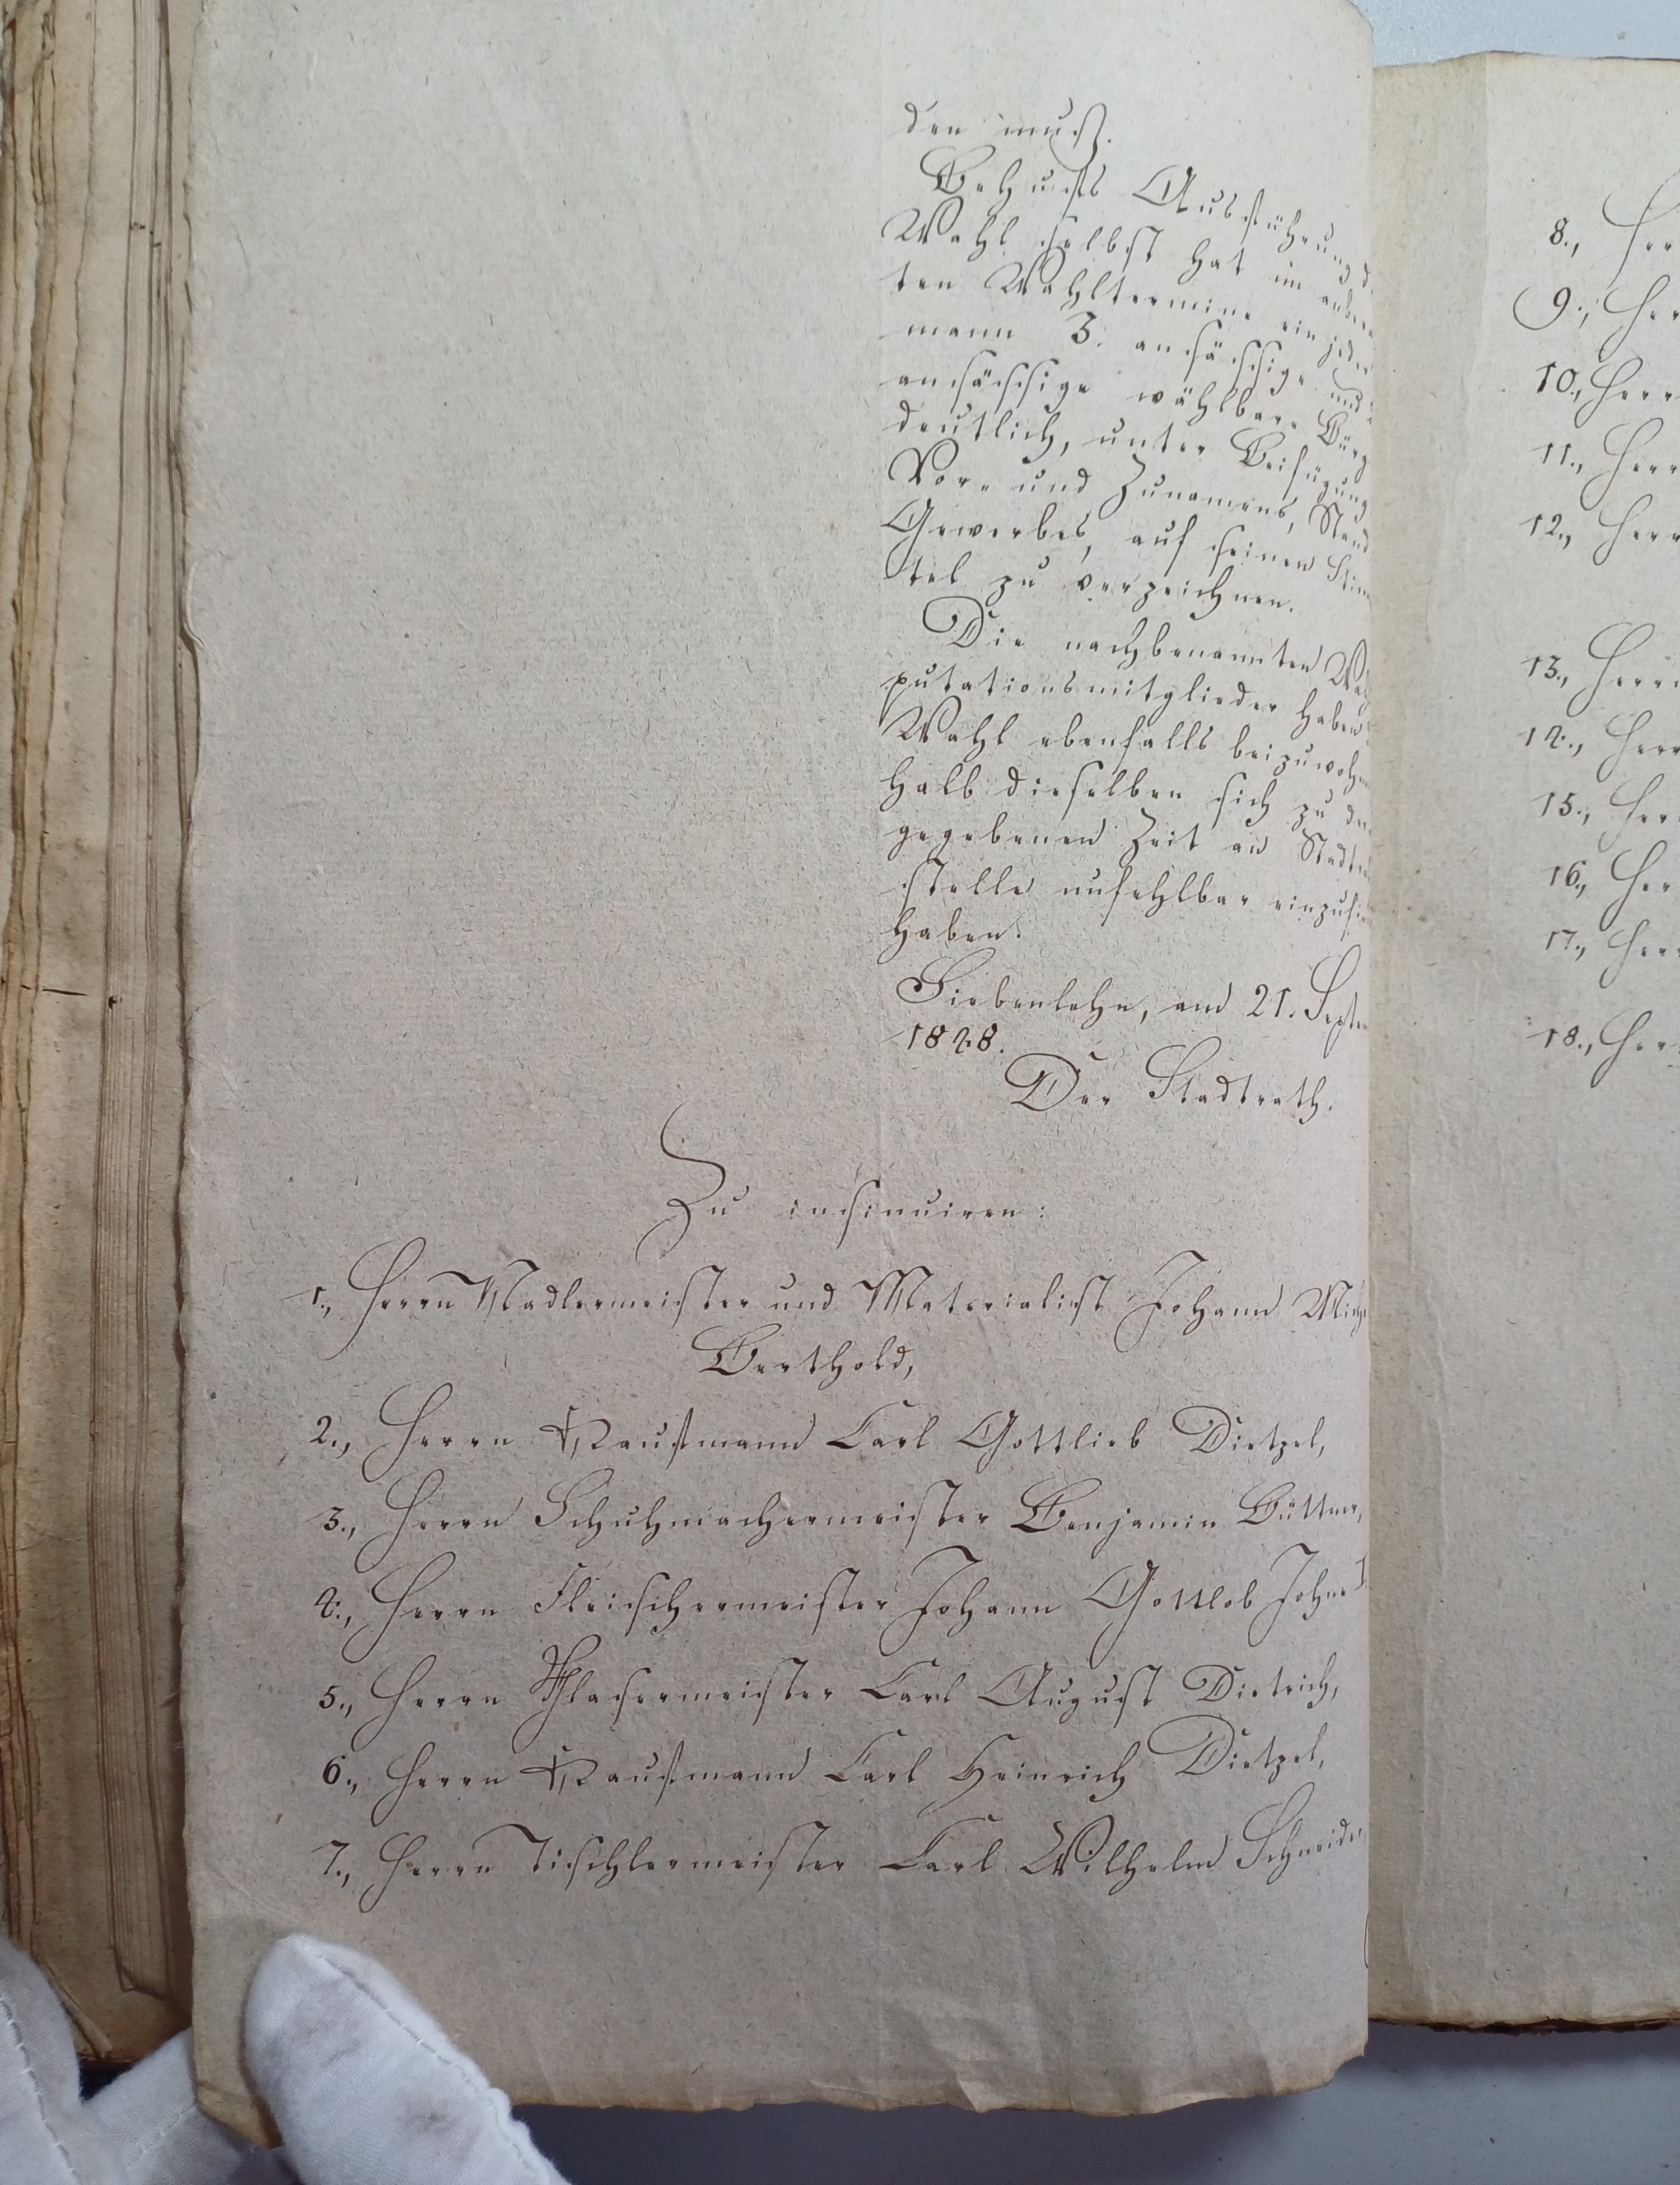 den muß.
Behufs Ausführung d
Wahl selbst hat im anbera
ten Wahltermine ein jeder
mann 3. ansässige und
ansässige wählbare Bürg
deutlich, unter Beifügung
Vor- und Zunamens, Stand
Gewerbes, auf seinen Stim
tel zu verzeichnen.
Die nachbenannten Wah
putationsmitglieder haben
Wahl ebenfalls beizuwohn
halb dieselben sich zu der
gegebenen Zeit an Stadtra
stelle unfehlbar einzufin
haben.
Siebenlehn, am 21. Septem
1848.
Der Stadtrath.
Zu insinuiren:
1., Herrn Nadlermeister und Materialist Johann Mich
Berthold,
2., Herrn Kaufmann Carl Gottlieb Dietzel,
3., Herrn Schuhmachermeister Benjamin Büttner,
4., Herrn Fleischermeister Johann Gottlob John
5., Herrn Glasermeister Carl August Dietrich,
6., Herrn Kaufmann Carl Heinrich Dietzel,
7., Herrn Tischlermeister Carl Wilhelm Schneider
8., Her
9., Her
10., Herr
11., Herr
12., Herr
13., Herrn
14., Herr
15., Her
16., Her
17., Her
18., Her